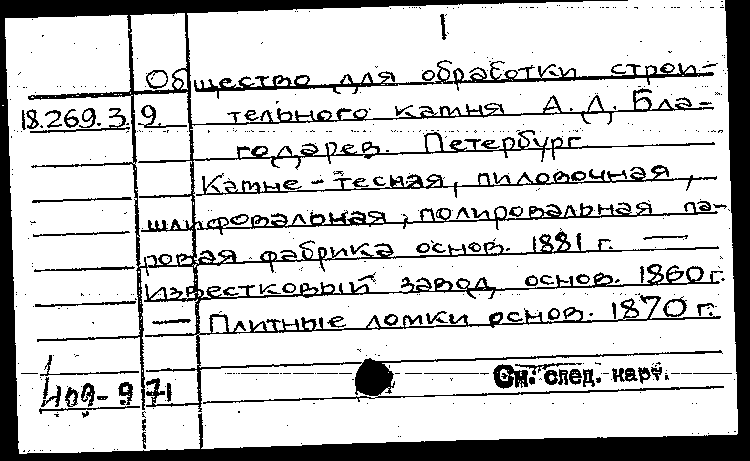 1
Общество для обработки строи-
18.269.3.9. тельного камня А. Д. Бла-
годарев. Петербург
Камне-тесная, пиловочная,
шлифовальная, полировальная па-
ровая фабрика основ. 1881 г. —
Известковый завод, основ. 1860 г.
— Плитные ломки основ. 1870 г.
409-971
См. след. карт.